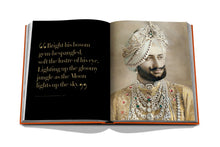 “Bright his bosom
gem bespangled,
soft the lustre of his eye,
Lighting up the gloomy
jungle as the Moon
lights up the sky.”